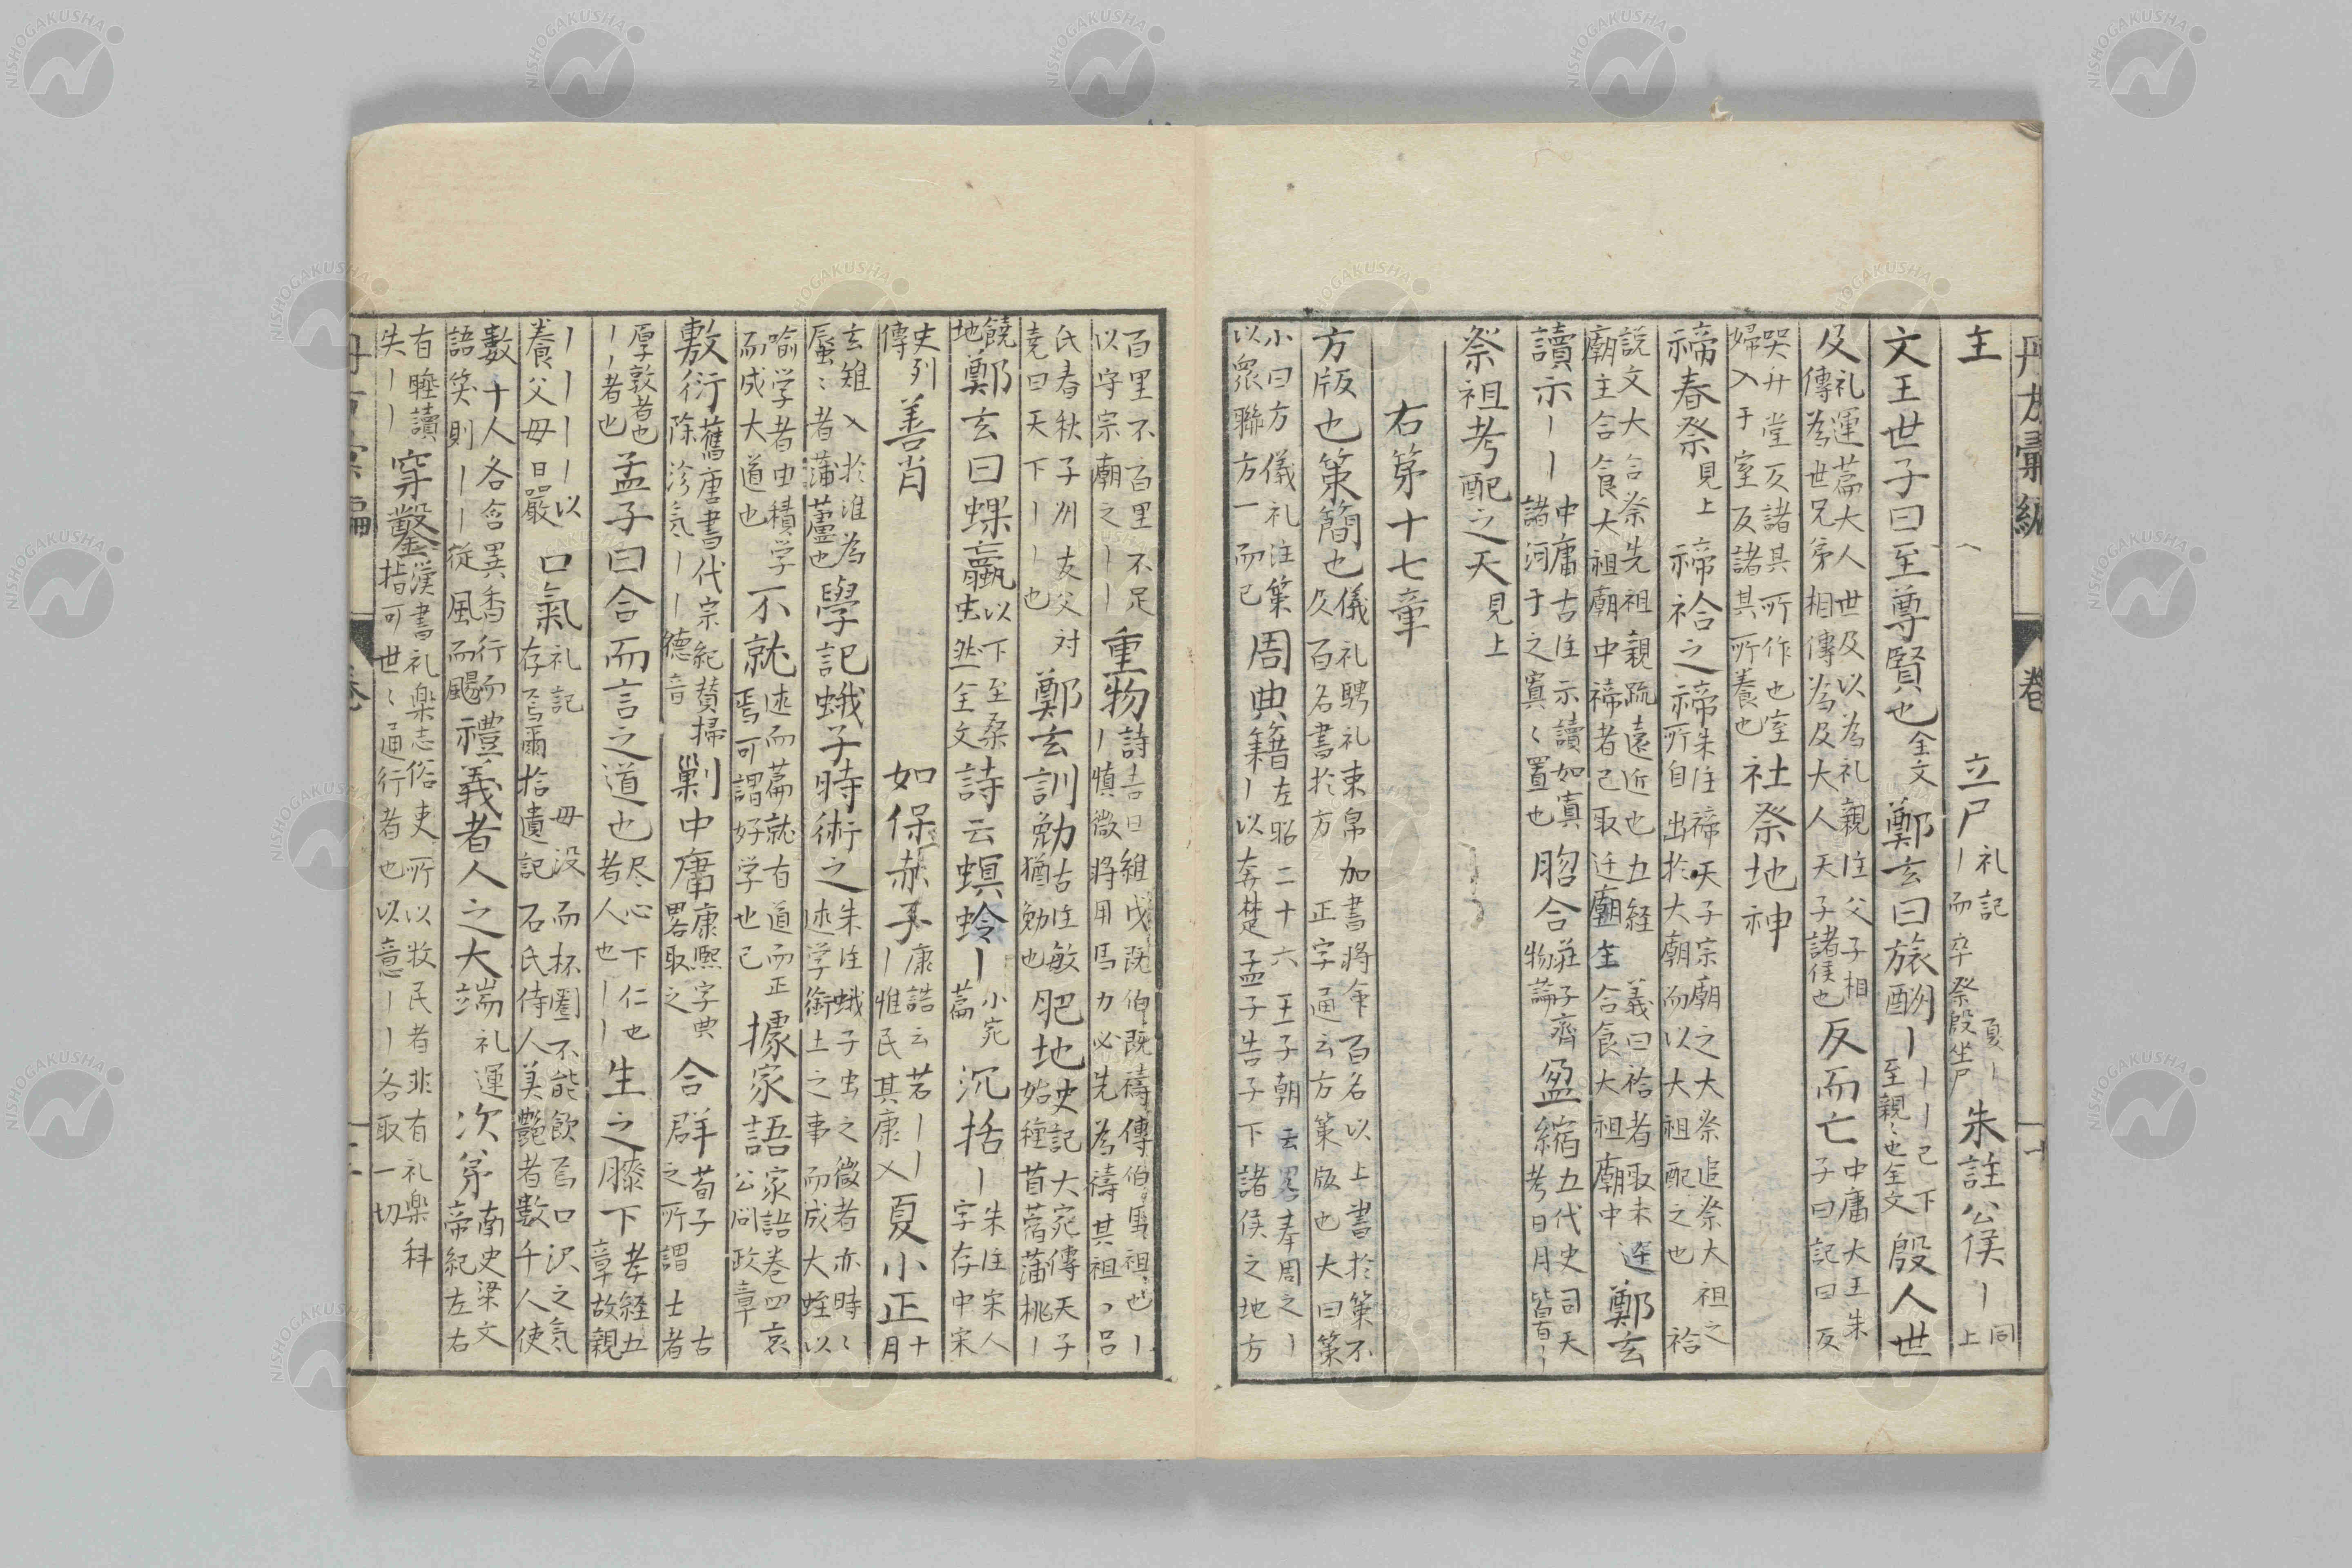 主　立尸 礼記｜而卒祭 夏｜殷坐尸 朱註公侯｜同上
文王世子曰至尊賢也 仝文 鄭玄曰旅酬｜｜｜｜已下至親〻也仝文 殷人世
及 礼運篇大人世及以為礼親注父子相傳為世兄弟相傳為及大人天子諸侯也 反而亡 中庸大王朱子曰記曰反
哭升堂反諸其所作也主婦入于室反諸其所養也 社祭地神
禘春祭 見上 禘祫之禘 朱注禘天子宗廟之大祭追祭大祖之所自出於大廟而以大祖配之也 祫
説文大合祭先祖親疏遠近也五経義曰祫者取未迁廟主合食大祖廟中禘者已取迁廟主合食大祖廟中 鄭玄
讀示｜｜ 中庸古注示讀如寘諸河于之寘〻置也 脗合 荘子齊物論 盈縮 五代史司天考日月皆有〻
祭祖考配之天 見上
右第十七章
方版也策簡也 儀礼聘礼束帛加書将命百名以上書於策不及百名書於方 正字通云方策版也大曰策
小曰方儀礼注策以衆聯方一而已 周典籍 左昭二十六王子朝 奉周之｜｜以奔楚孟子告子下諸侯之地方
百里不百里不足以守宗廟之｜｜ 重物｜ 詩吉日維戊既伯既禱傳伯馬祖也｜慎微将用馬力必先為禱其祖〻呂
氏春秋子州友父対堯曰天下｜｜也 鄭玄訓勉 古注敏猶勉也 肥地 史記大宛傳天子始種苜蓿蒲桃｜
饒地 鄭玄曰蜾蠃 以下至桑虫然仝文 詩云螟蛉｜ 小宛篇 沉括｜ 朱注宋人字存中宋
史列傳 善肖　如保赤子 康誥云若｜｜｜惟民其康乂 夏小正 十月
玄雉入於淮為蜃〻者蒲蘆也 學記蛾子時術之 朱注蛾子虫之微者亦時〻述学銜土之事而成大蛭以
喻学者由積学而成大道也 不就 述而篇就有道而正焉可謂好学也已 據家語 家語巻四哀公問政章
敷衍 舊唐書代宗紀賛掃除沴氛｜｜德音 剿中庸 康熙字典畧取之 合群 荀子之所謂士者
厚敦者也｜｜者也 孟子曰合而言之道也 尽心下仁也者人也｜｜ 生之膝下 孝経五章故親
｜｜｜｜以養父母日嚴 口氣 礼記 母没而杯圏不能飲焉口沢之気存焉爾 拾遺記石氏侍人美艶者數千人使
數十人各含異香行而語笑則｜｜従風而颺 禮義者人之大端 礼運 次第 南史梁文帝紀左右
有睡讀失｜｜ 穿鑿 漢書礼楽志俗吏所以牧民者非有礼楽科指可世〻通行者也以意｜｜各取一切